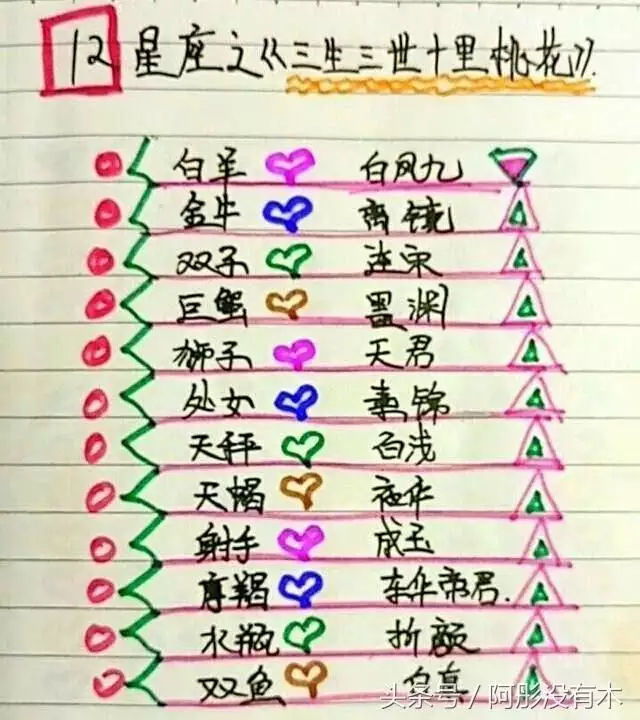 12星座之《三生三世十里桃花》.
白羊 白凤九
金牛 离镜
双子 连宋
巨蟹 墨渊
狮子 天君
处女 素锦
天秤 白浅
天蝎 夜华
射手 成玉
摩羯 东华帝君.
水瓶 折颜
双鱼 白真
头条号/阿彤没有木